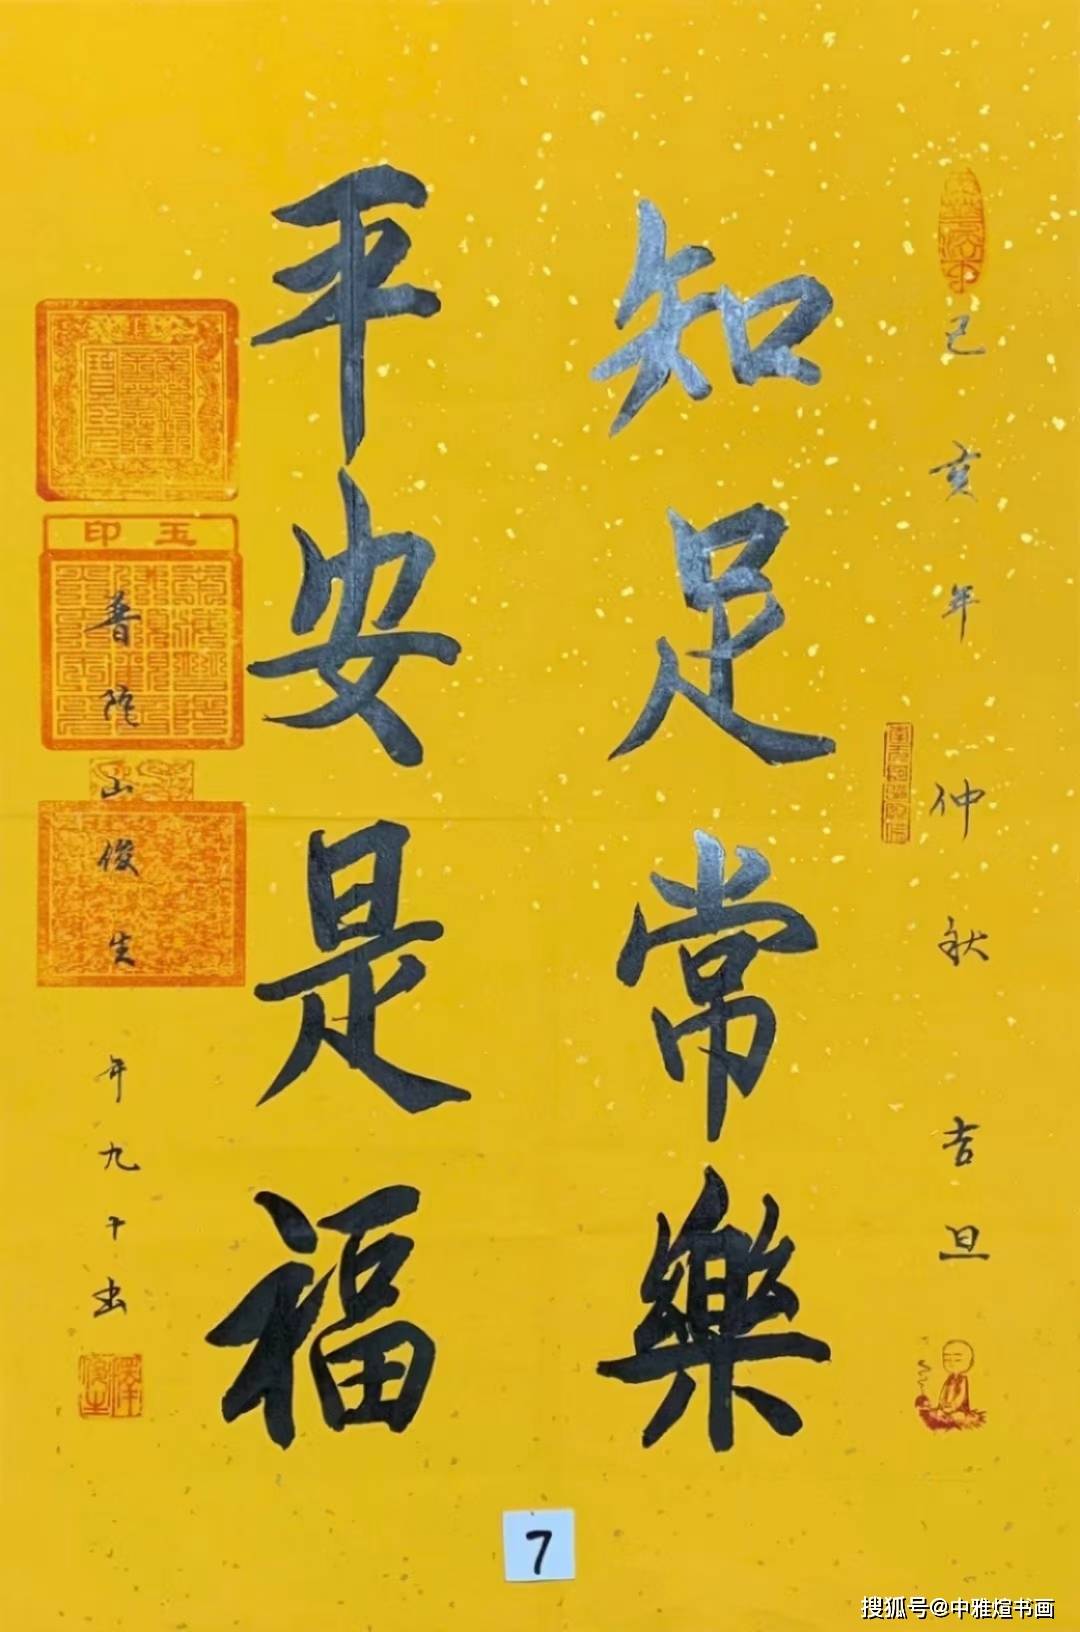 己亥年仲秋吉旦
知足常樂
平安是福
普陀山俊生
年九十书
玉印
7
搜狐号@中雅煊书画